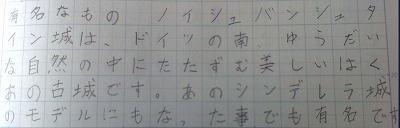 有名なもの ノイシュバンシュタ
イン城は、ドイツの南、ゆうだい
な自然の中にたたずむ美しいはく
あの古城です。あのシンデレラ城
のモデルにもなった事でも有名です